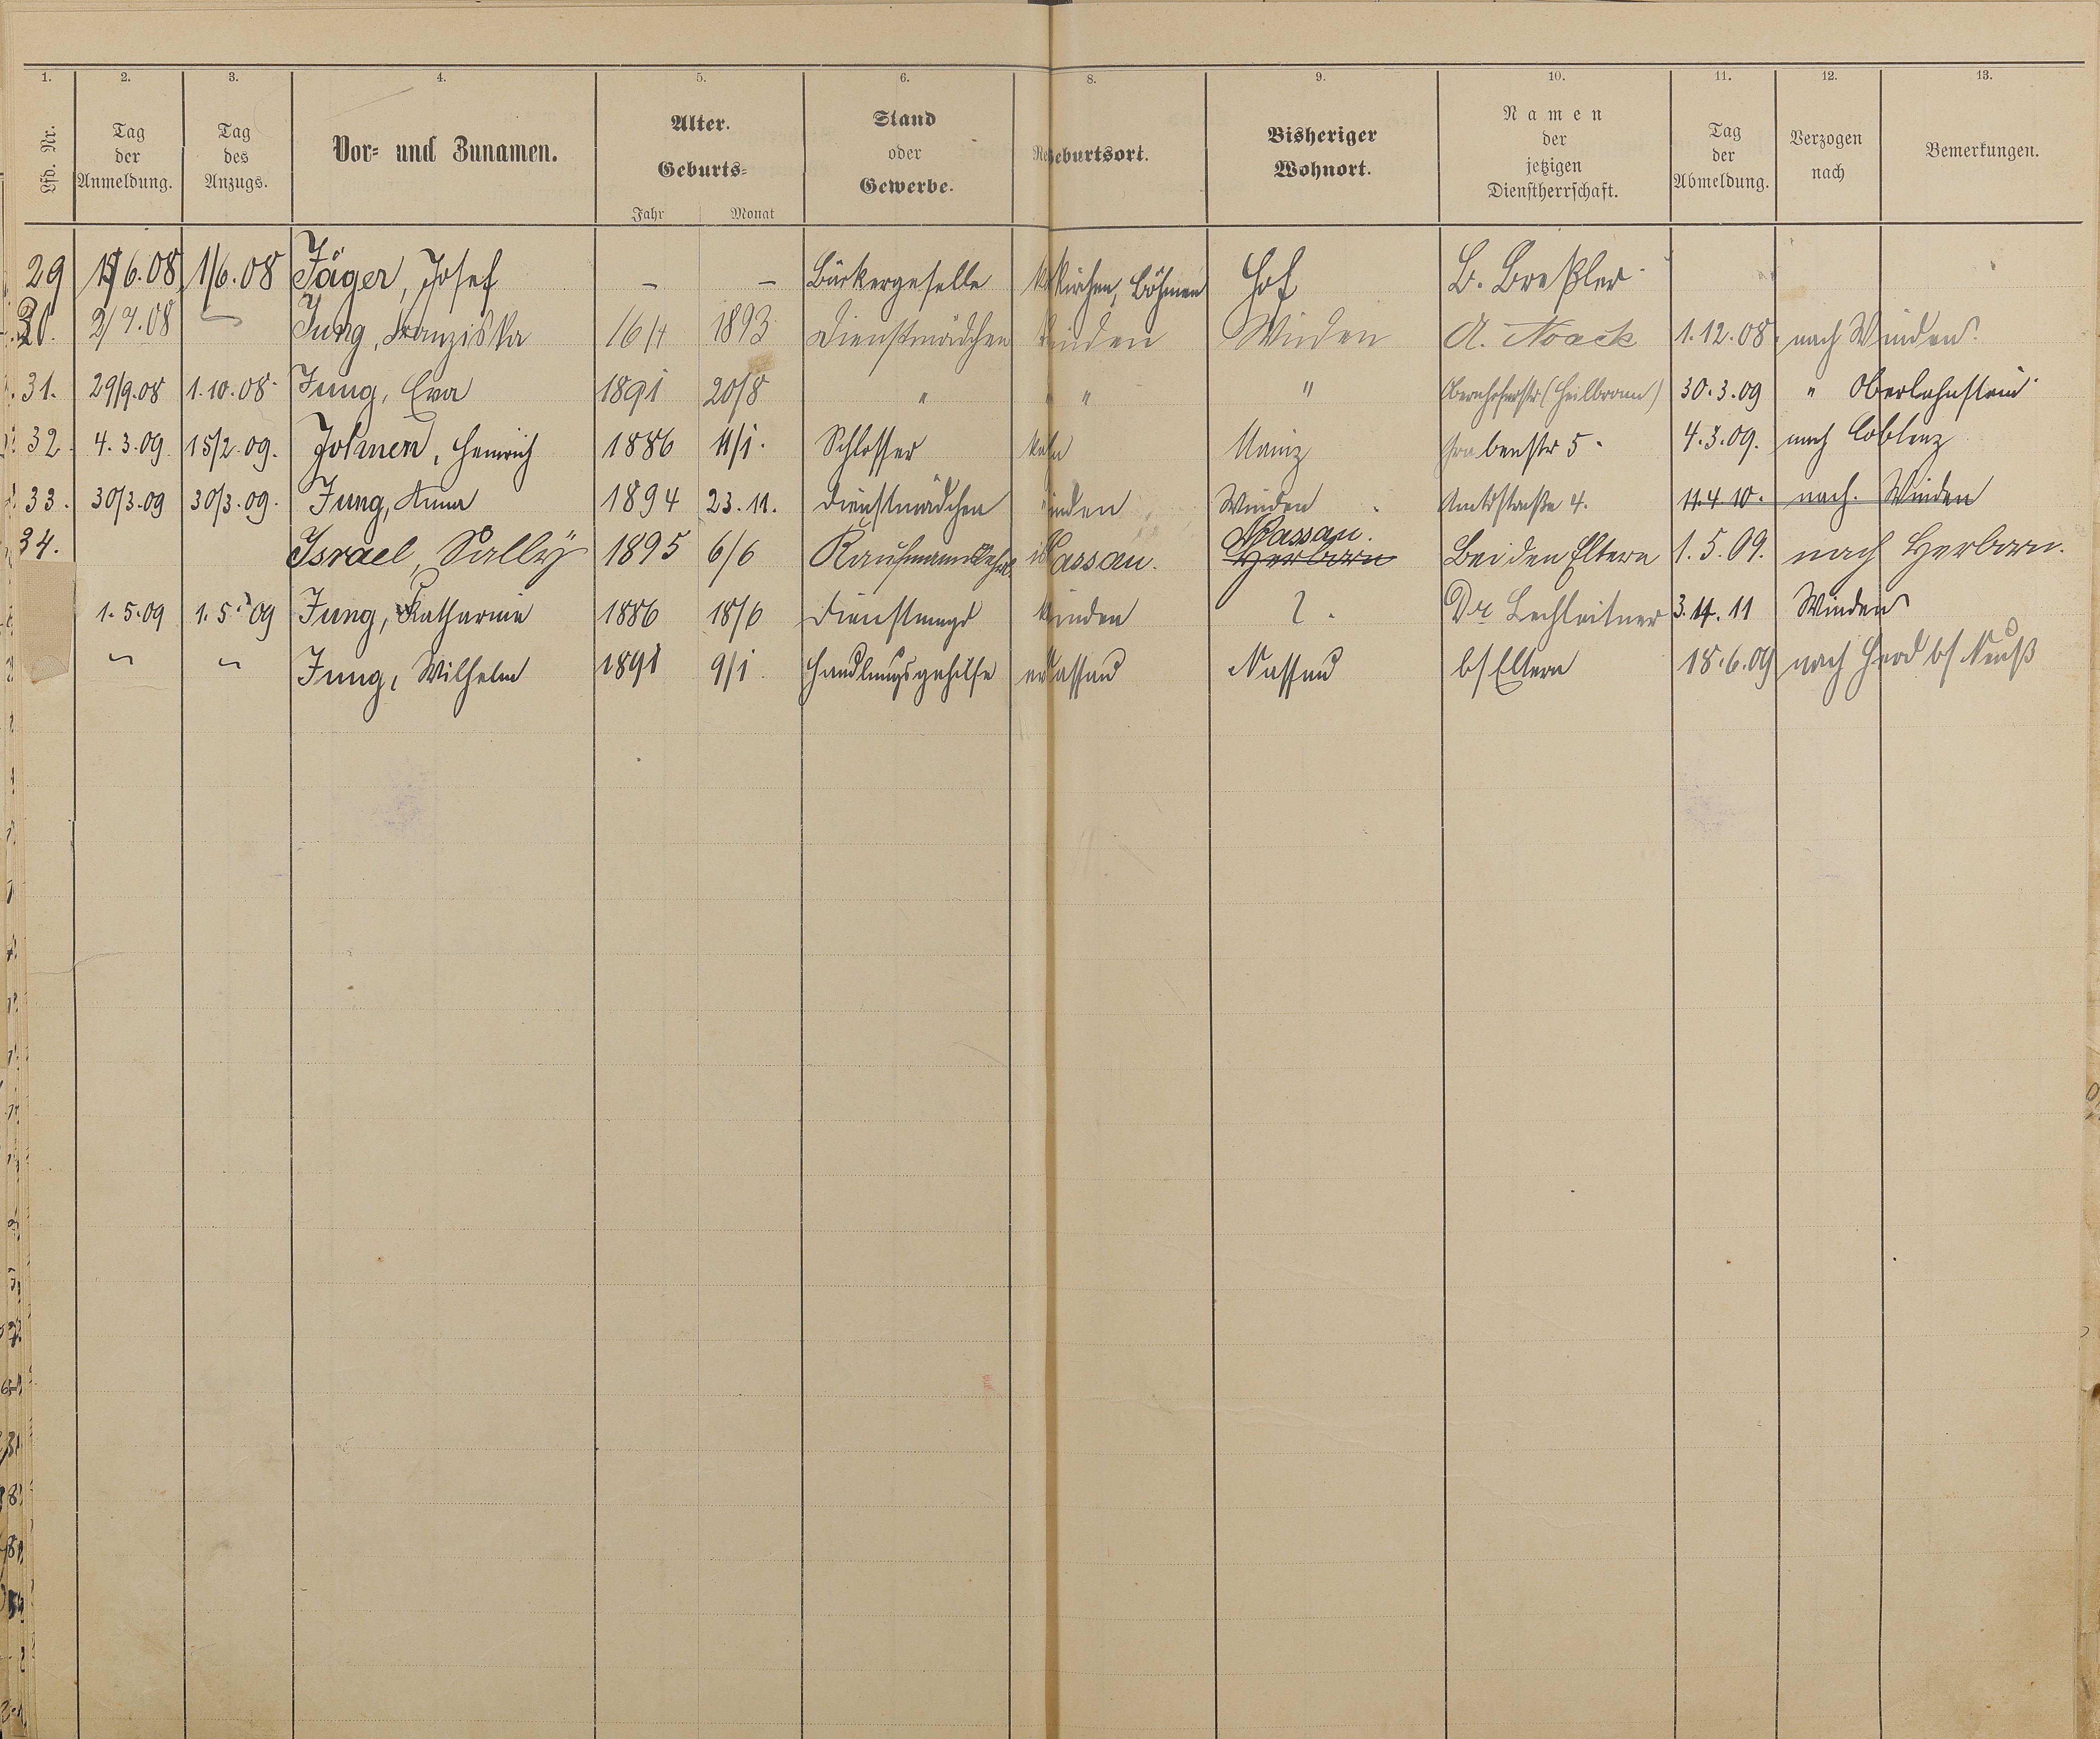 1. 2. 3. 4. 5. 6. 8. 9. 10. 11. 12. 13.
Lfd. Nr. Tag der Anmeldung. Tag des Anzugs. Vor- und Zunamen. Alter. Geburts- Jahr Monat Stand oder Gewerbe. Geburtsort. Bisheriger Wohnort. Namen der jetzigen Dienstherrschaft. Tag der Abmeldung. Verzogen nach Bemerkungen.
29 6.08 1/6.08 Jäger, Josef — — Bäckergeselle kirchen, Böhmen Hof
30. 2/7.08 " Jung, Franziska 16/4 1893 Dienstmädchen Winden Winden A. Noack 1.12.08. nach Winden.
31. 29/9.08 1.10.08. Jung, Eva 1891 20/8 " " " (Heilbronn) 30.3.09 " Oberlahnstein
32. 4.3.09. 15/2.09. Heinrich 1886 11/1. Schlosser Mainz Grabenstr 5. 4.3.09. nach Coblenz
33. 30/3.09 30/3.09. Jung, Anna 1894 23.11. Dienstmädchen Winden Winden Amtsstraße 4. 11.4.10. nach. Winden
34. Israel, Sally 1895 6/6 Nassau. Nassau. Herborn Bei den Eltern 1.5.09. nach Herborn.
1.5.09 1.5.09 Jung, Katharina 1886 18/6 Dienstmagd Winden Dr. Lechleitner 3.11.11 Winden
" " Jung, Wilhelm 1891 9/1. Handlungsgehilfe Nassau Nassau b/Eltern 18.6.09 nach b/ Neuß